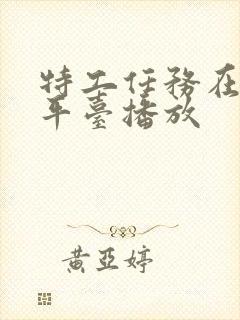 特工任務在
平臺播放
黃亞婷